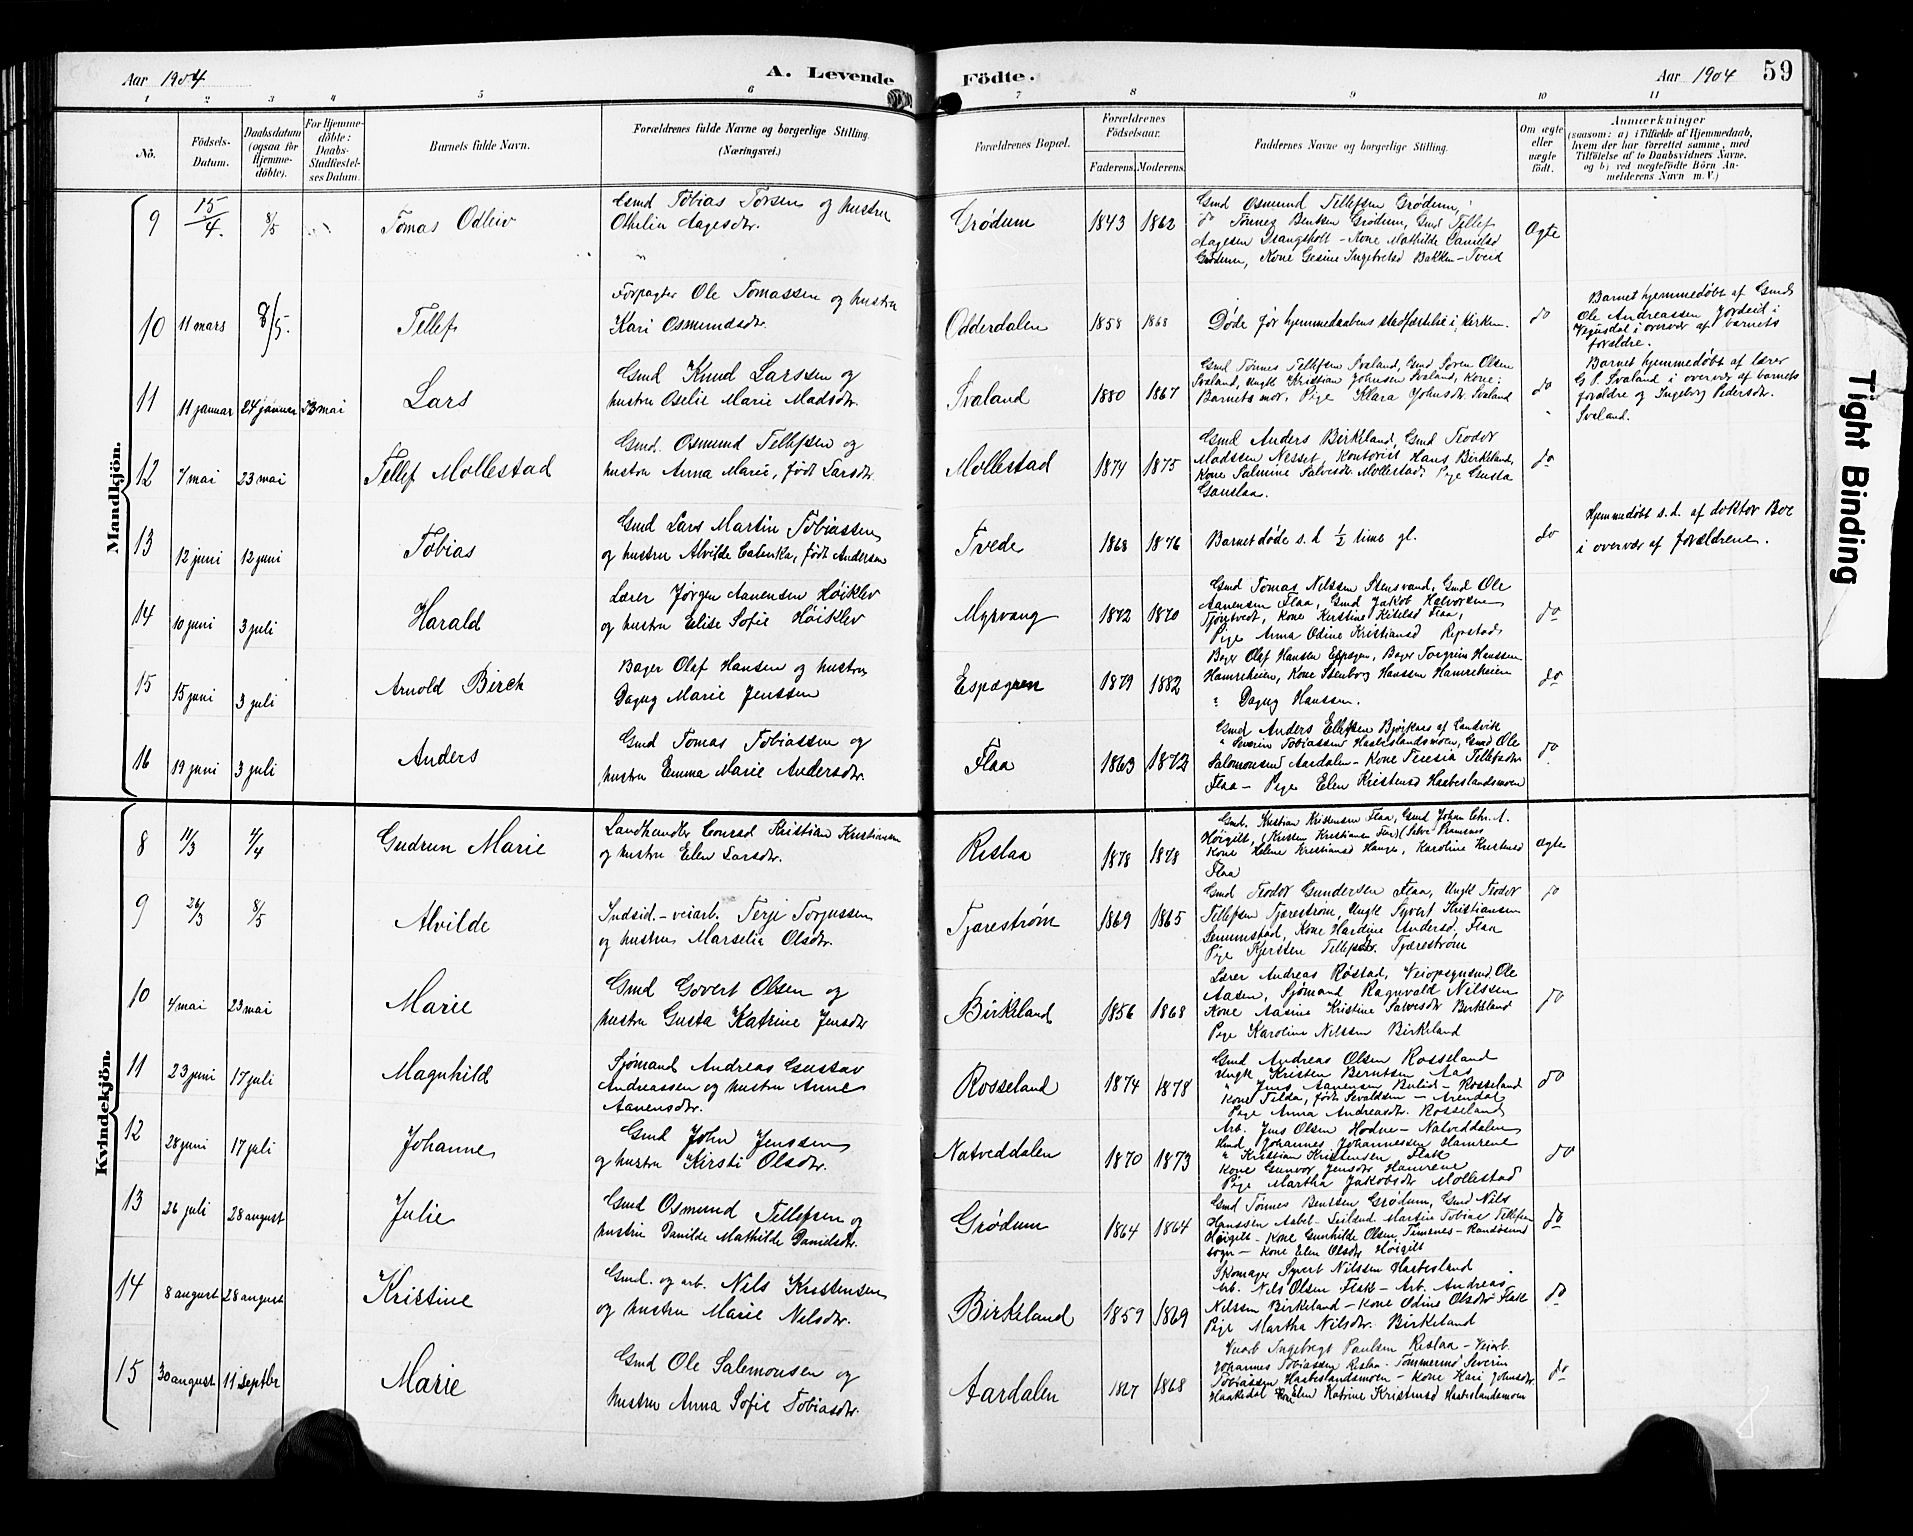 Aar 1904
A. Levende
Födte.
Aar 1904
59
1 2 3 4 5 6 7 8 9 10 11
No.
Födsels-
Datum.
Daabsdatum
(ogsaa for
Hjemme-
döbte).
For Hjemme-
döbte:
Daabs-
Stadfæstel-
ses Datum.
Barnets fulde Navn.
Forældrenes fulde Navne og borgerlige Stilling.
(Næringsvei.)
Forældrenes Bopæl.
Forældrenes
Födselsaar.
Faderens. Moderens.
Faddernes Navne og borgerlige Stilling.
Om ægte
eller
uægte
födt.
Anmærkninger
(saasom: a) i Tilfælde af Hjemmedaab,
hvem der har forrettet samme, med
Tilföielse af to Daabsvidners Navne,
og b) ved uægtefödte Börn An-
melderens Navn m. V.)
Mandkjön.
9 15/4. 8/5 Tomas Odleiv
Gmd Tobias Torsen og hustru
Othelia Aagesdtr.
Grødum 1843 1862
Gmd Osmund Tellefsen Grødum,
do Tønnes Bentsen Grødum, Gmd Tellef
Aagesen Drangsholt - Kone Mathilde Danielsd
Grødum, Kone Gesine Ingebretsd Bakken - Tveid
Ægte
10 11 mars 8/5. Tellef
Forpagter Ole Tomassen og hustru
Kari Osmundsdtr.
Odderdalen 1858 1868
Døde før hjemmedaabens stadfæstelse i kirken.
do
Barnet hjemmedøbt af Gmd
Ole Andreassen Jordeid i
Vegusdal i overvær af barnets
forældre.
11 11 januar 24 januar 23 mai Lars
Gmd Knud Larssen og
hustru Oselie Marie Madsdtr.
Svaland 1880 1867
Gmd Tønnes Tellefsen Svaland, Gmd Søren Olsen
Svaland, Ungk Kristian Johnsen Svaland, Kone:
Barnets mor, Pige Klara Johnsdtr. Svaland
do
Barnet hjemmedøbt af lærer
G P. Svaland i overvær af barnets
forældre og Ingeborg Pedersdtr.
Svaland.
12 7 mai 23 mai Tellef Mollestad
Gmd. Osmund Tellefsen og
hustru Anna Marie, født Larsdtr.
Mollestad 1874 1875
Gmd Anders Birkeland, Gmd Teodor
Madssen Nesset, Kontorist Hans Birkeland,
Kone Salmine Salvesdtr Mollestad, Pige Gusta
Gauslaa.
do
13 12 juni 12 juni Tobias
Gmd Lars Martin Tobiassen
og hustru Alvilde Catinka, født Andersen
Tvede 1868 1876
Barnet døde s. d. 1/2 time gl.
do
Hjemmedøbt s. d. af doktor Boe
i overvær af forældrene.
14 10 juni 3 juli Harald
Lærer Jørgen Aanensen Høiklev
og hustru Elise Sofie Høiklev
Myrvang 1872 1870
Gmd Tomas Nilssen Stensvand, Gmd Ole
Aanensen Flaa, Gmd Jakob Halvorsen
Tjøntvedt, Kone Kirstine Kittelsd Flaa,
Pige Anna Odine Kristiansd Repstad
do
15 15 juni 3 juli Arnold Birch
Bager Olaf Hansen og hustru
Dagny Marie Jenssen
Espegren 1879 1882
Bager Olaf Hansen Espegren, Bager Torgrim Hanssen
Hamreheien, Kone Stenborg Hanssen Hamreheien
" Dagny Hanssen.
do
16 19 juni 3 juli Anders
Gmd Tomas Tobiassen og
hustru Emma Marie Andersdtr.
Flaa 1863 1872
Gmd Anders Ellefsen Bjørknes af Landvik
" Severin Tobiassen Haabeslandsmoen, Gmd Ole
Salomonsen Aardalen - Kone Teresia Tellefsdtr
Flaa - Pige Elen Kristensd Haabeslandsmoen
do
Kvindekjön.
8 11/3 4/4 Gudrun Marie
Landhandler Conrad Kristian Kristiansen
og hustru Elen Larsdtr.
Rislaa 1878 1878
Gmd. Kristian Kristensen Flaa, Gmd Johan Chr. A.
Høigilt,
Kone Helene Kristiansd Hauge, Karoline Kristensd
Flaa
Ægte
9 26/3 8/5 Alvilde
Indsid. - veiarb. Terje Torjussen
og hustru Marselia Olsdtr.
Tjærestrøm 1869 1865
Gmd Teodor Gundersen Flaa, Ungk Teodor
Tellefsen Tjærestrøm, Ungk Syvert Kristiansen
Senumstad, Kone Hardine Andersd. Flaa
Pige Kjersten Tellefsdtr. Tjærestrøm
do
10 4 mai 23 mai Marie
Gmd Govert Olsen og
hustru Gusta Katrine Jensdtr
Birkeland 1856 1868
Lærer Andreas Røstad, Veiopsynsmd. Ole
Aasen, Sjømand Ragnvald Nilssen
Kone Aasine Kristine Salvesdtr Birkeland
Pige Karoline Nilssen Birkeland
do
11 23 juni 17 juli Magnhild
Sjømand Andreas Gustav
Andreassen og hustru Anne
Aanensdtr.
Rosseland 1874 1878
Gmd Andreas Olsen Rosseland
Ungk Kristen Berntsen Aas
" Jens Aanensen Bulid - Rosseland
Kone Tilda, født Sevaldsen - Arendal
Pige Anna Andreasdtr. Rosseland
do
12 28 juni 17 juli Johanne
Gmd John Jenssen
og hustru Kirsti Olsdtr.
Natveddalen 1870 1873
Arb. Jens Olsen Hodne - Natveddalen
Gmd Johannes Johannessen Hamrene
" Kristian Kristensen Flak
Kone Gunvor Jensdtr Hamrene
Pige Martha Jakobsdtr Mollestad
do
13 26 juli 28 august Julie
Gmd Osmund Tellefsen og
hustru Danilde Mathilde Danielsdtr.
Grødum 1864 1864
Gmd Tønnes Bentsen Grødum, Gmd Nils
Hanssen Aabel - Martin Tobias Tellefsen
Høigilt - Kone Gunhilde Olsen Timenes - Randøsund
sogn - Kone Elen Olsdtr Høigilt
do
14 8 august 28 august Kristine
Gmd. og arb. Nils Kristensen
og hustru Marie Nilsdtr.
Birkeland 1859 1869
Skomager Syvert Nilssen Haabesland
Arb. Nils Olsen Flak - Arb. Andreas
Nilssen Birkeland - Kone Odine Olsdtr Flak
Pige Martha Nilsdtr. Birkeland
do
15 30 august 11 septbr Marie
Gmd Ole Salomonsen og
hustru Anna Sofie Tobiasdtr.
Aardalen 1867 1868
Veiarb Ingebregt Paulsen Rislaa - Veiarb.
Johannes Tobiassen Rislaa - Tømmermd Severin
Tobiassen Haabeslandsmoen - Kone Kari Johnsdtr
Haakedal Kone Elen Katrine Kristensd Haabeslandsmoen
do
Tight Binding